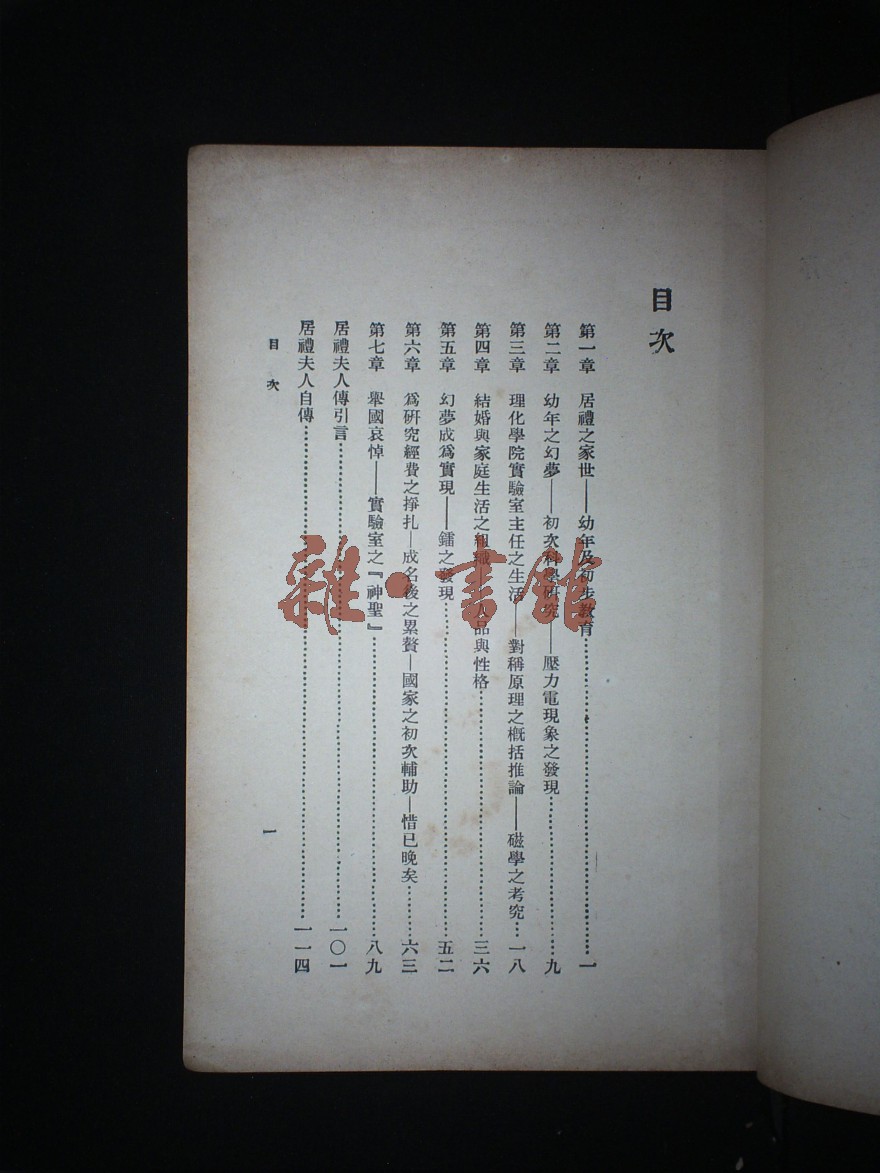 目次
第一章 居禮之家世——幼年及初步教育……一
第二章 幼年之幻夢——初次科學研究——壓力電現象之發現……九
第三章 理化學院實驗室主任之生活——對稱原理之概括推論——磁學之考究…一八
第四章 結婚與家庭生活之組織——人品與性格……三六
第五章 幻夢成爲實現——鐳之發現……五二
第六章 爲研究經費之掙扎—成名後之累贅—國家之初次輔助—惜已晚矣……六三
第七章 舉國哀悼——實驗室之『神聖』……八九
居禮夫人傳引言……一〇一
居禮夫人自傳……一一四
目次 一
雜·書館